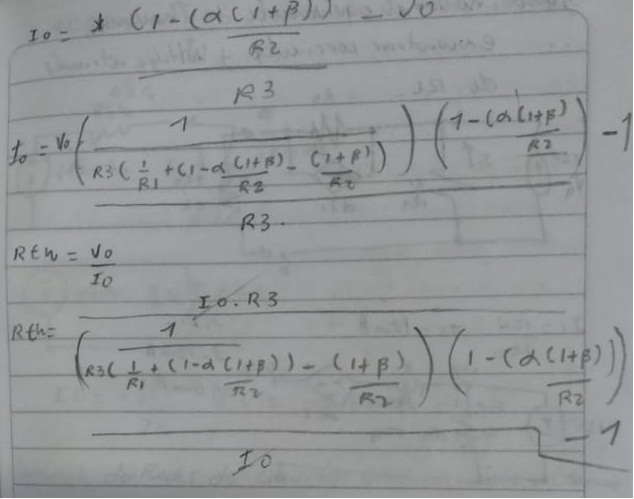 I0 = * (1 - (α(1+β)/R2)) - V0 / R3
I0 = V0 (1 / R3(1/R1 + (1-α(1+β)/R2) - (1+β)/R2)) (1-(α(1+β)/R2) - 1 / R3.
Rth = V0/I0
Rth = I0.R3 / (1 / R3(1/R1 + (1-α(1+β)/R2)) - (1+β)/R2) (1 - (α(1+β)/R2)) - 1 / I0